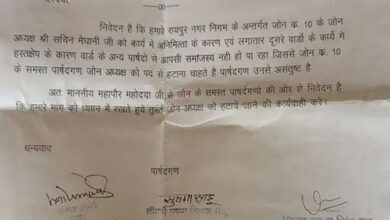 -00-
निवेदन है कि हमारे रायपुर नगर निगम के अन्तर्गत जोन क. 10 के जोन
अध्यक्ष श्री सचिन मेघानी जी को कार्य में अनिमित्ता के कारण एवं लगातार दूसरे वार्डो के कार्यो में
हस्तक्षेप के कारण वार्ड के अन्य पार्षदो से आपसी समाजस्य नही हो पा रहा जिससे जोन क. 10
के समस्त पार्षदगण जोन अध्यक्ष को पद से हटाना चाहते है पार्षदगण उनसे असंतुष्ट है
अतः माननीय महापौर महोदया जी से जोन के समस्त पार्षदगणो की ओर से निवेदन है
कि हमारे मांग को ध्यान में रखते हुये तुरन्त जोन अध्यक्ष को हटाये जाने की कार्यवाही करे।
धन्यवाद
पार्षदगण